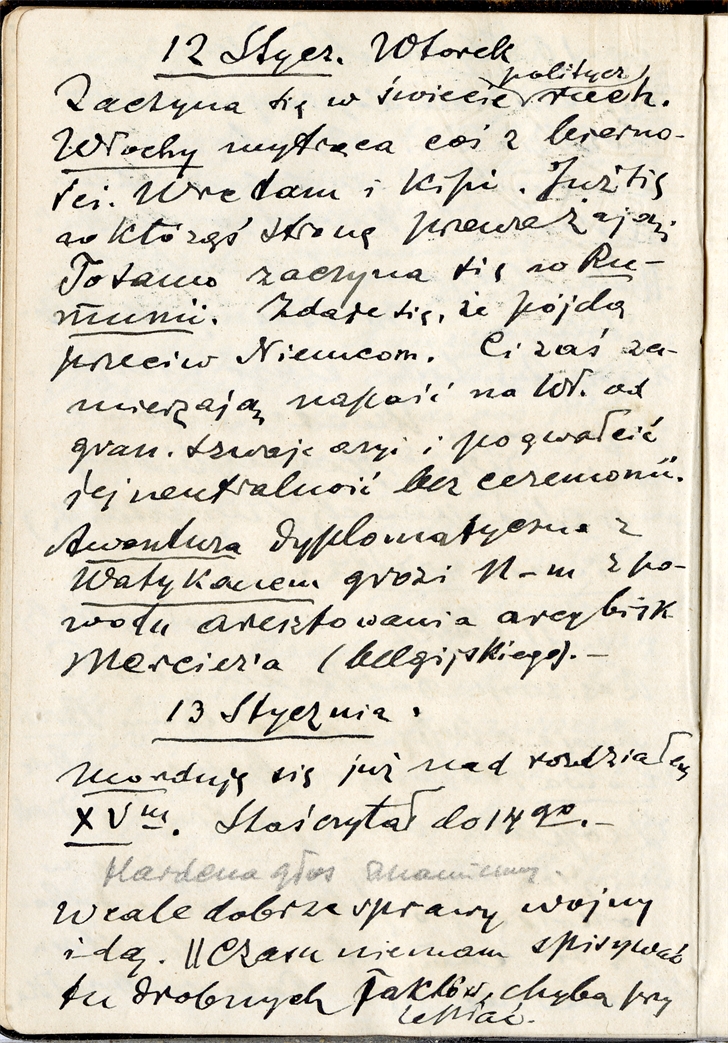 12 Stycz. Wtorek
politycz
Zaczyna się w świecie ruch.
Włochy wytrąca coś z bierno-
ści. Wre tam i kipi. Już się
na którąś stronę przeważają,
To samo zaczyna się w Ru-
munii. Zdaje się, że pójdą
przeciw Niemcom. Ci zaś za-
mierzają napaść na Wł. od
gran. szwajcaryi i pogwałcić
jej neutralność bez ceremonii.
Awantura dyplomatyczna z
Watykanem grozi N-m z po-
wodu aresztowania arcybisk
Merciera (belgijskiego).—
13 Stycznia.
Morduję się już nad rozdziałem
XVm. Staś czytał do 14go.—
Hardena głos znamienny.
Wcale dobrze sprawy wojny
idą. || Czasu niemam spisywać
tu drobnych faktów, chyba przy
lepiać.